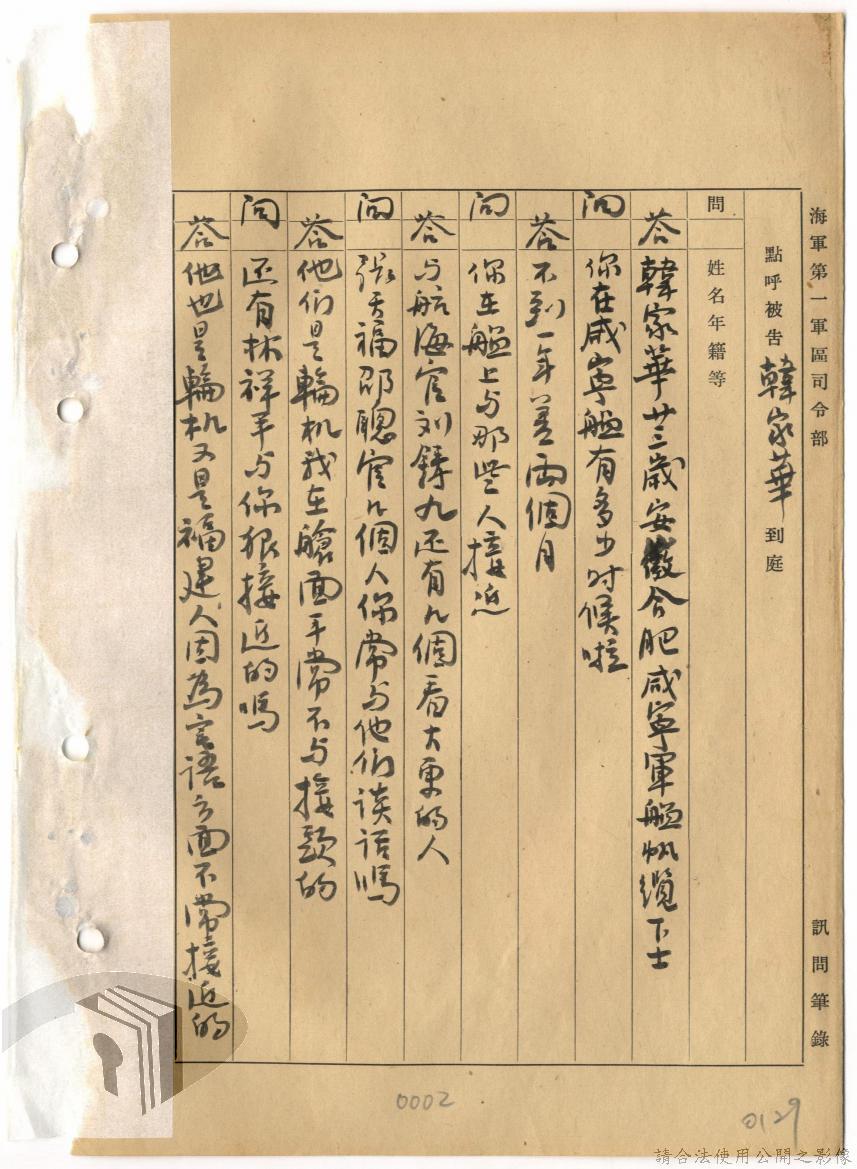 海軍第一軍區司令部 訊問筆錄
點呼被告韓家華到庭
問 姓名年籍等
答 韓家華廿三歲安徽合肥咸寧軍艦帆纜下士
问 你在咸寧艦有多少时候啦
答 不到一年差兩個月
问 你在艦上与那些人接近
答 与航海官刘鋳九还有几個看大更的人
问 張天福邵聰官几個人你常与他们谈话嗎
答 他们是輪机我在艙面平常不与接頭的
问 还有林祥平与你狠接近的嗎
答 他也是輪机又是福建人因為言语方面不常接近的
0002
0129
請合法使用公開之影像